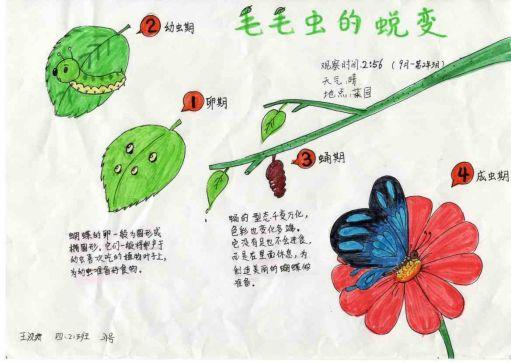 毛毛虫的蜕变
② 幼虫期
观察时间:2:56
天气:晴
地点:菜园
① 卵期
③ 蛹期
④ 成虫期
蝴蝶的卵一般为圆形或
椭圆形。它们一般将卵产于
幼虫喜欢吃的植物叶子上,
为幼虫准备好食物。
蛹的型态千变万化,
色彩也变化多端。
它没有足也不会进食,
而是在里面休息,为
创造美丽的蝴蝶做
准备。
四(2)班